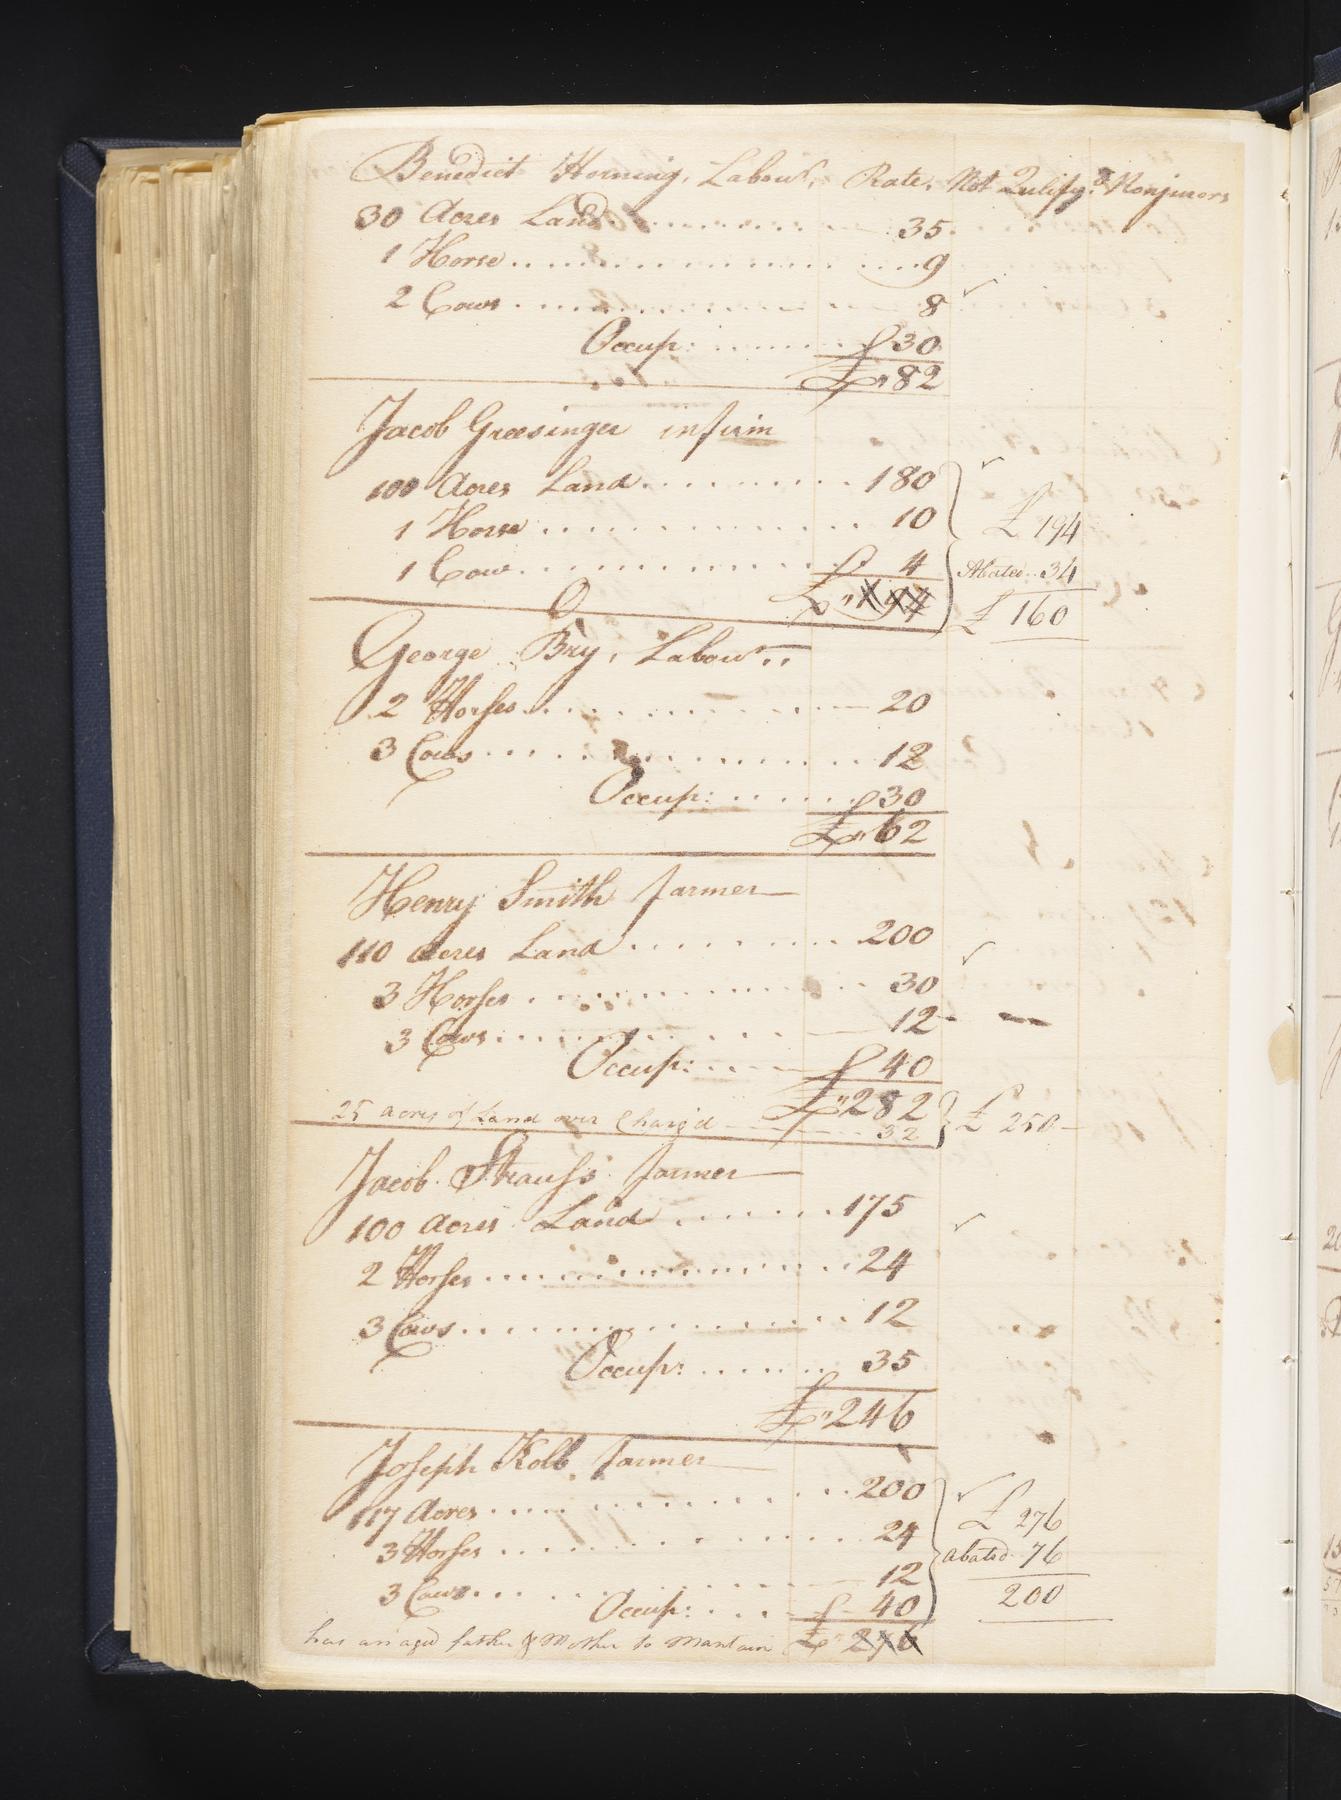 Benedict Horning, Labour, Rate, Not Qulify'd Nonjurors
30 Acres Land 35
1 Horse 9
2 Cows 8
Occup: 30
£ 82
Jacob Greesinger infirm
100 Acres Land 180
1 Horse 10
£ 194
1 Cow 4
Abated 34
£ 194
£ 160
George Bry, Labour
2 Horses 20
3 Cows 12
Occup: 30
£ 62
Henry Smith farmer
110 Acres Land 200
3 Horses 30
3 Cows 12
Occup: 40
£ 282
25 acres of Land over Charg'd 32
£ 250
Jacob Strauss farmer
100 Acres Land 175
2 Horses 24
3 Cows 12
Occup: 35
£ 246
Joseph Kolb farmer
117 Acres 200
£ 276
3 Horses 24
abated 76
3 Cows 12
200
Occup: 40
has an aged father & Mother to Mantain £ 276